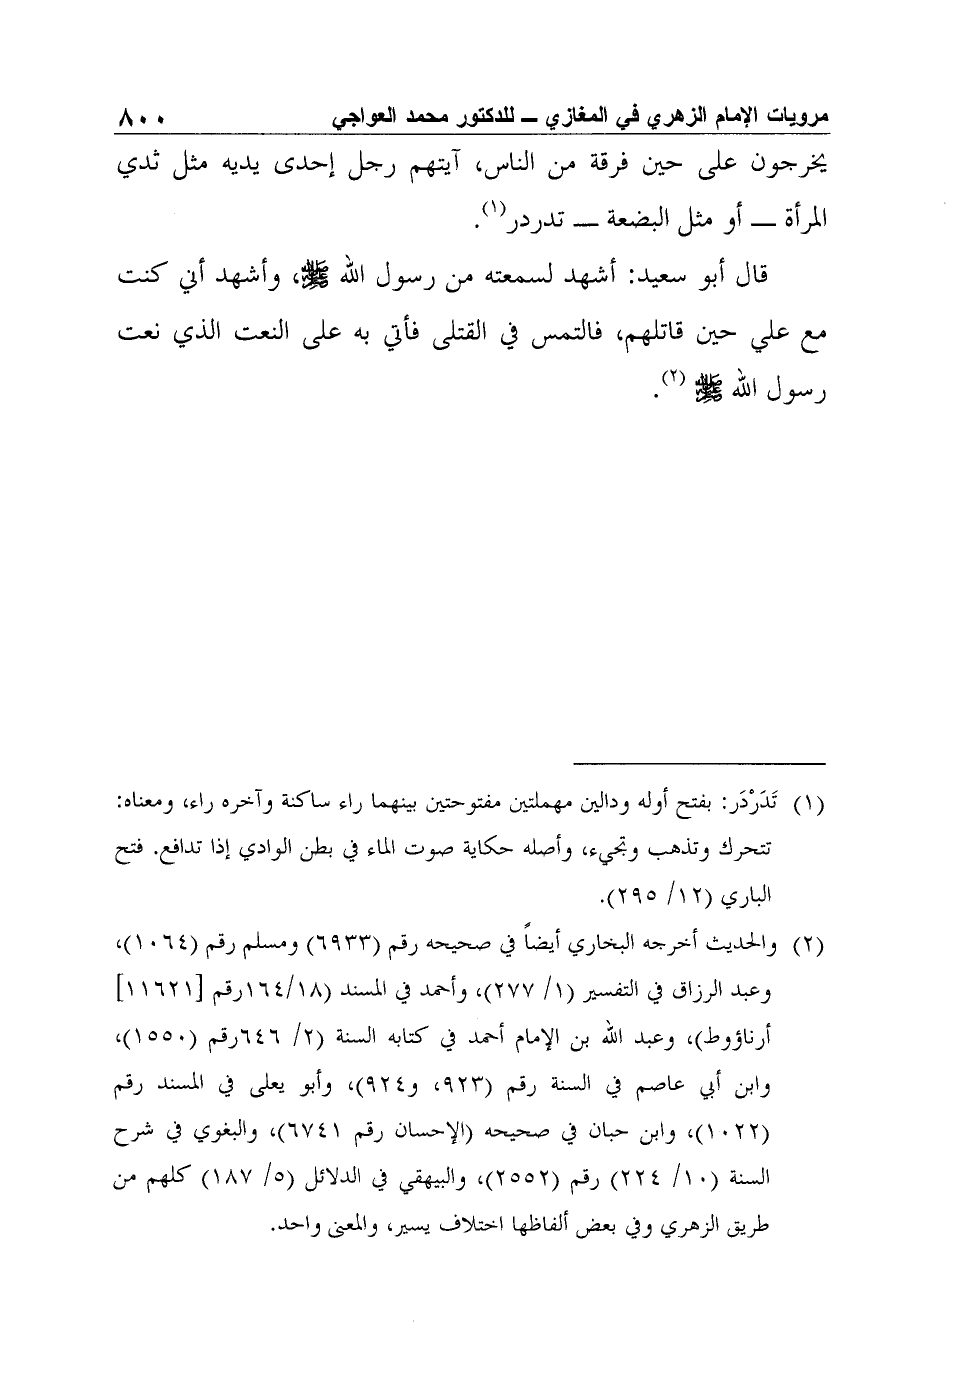 مرويات الإمام الزهري في المغازي ــ للدكتور محمد العواجي ٨٠٠
يخرجون على حين فرقة من الناس، آيتهم رجل إحدى يديه مثل ثدي
المرأة ــ أو مثل البضعة ــ تدردر(١).
قال أبو سعيد: أشهد لسمعته من رسول الله ﷺ، وأشهد أني كنت
مع علي حين قاتلهم، فالتمس في القتلى فأتي به على النعت الذي نعت
رسول الله ﷺ (٢).
(١) تَدَرْدَر: بفتح أوله ودالين مهملتين مفتوحتين بينهما راء ساكنة وآخره راء، ومعناه:
تتحرك وتذهب وتجيء، وأصله حكاية صوت الماء في بطن الوادي إذا تدافع. فتح
الباري (١٢/ ٢٩٥).
(٢) والحديث أخرجه البخاري أيضاً في صحيحه رقم (٦٩٣٣) ومسلم رقم (١٠٦٤)،
وعبد الرزاق في التفسير (١/ ٢٧٧)، وأحمد في المسند (١٦٤/١٨رقم [١١٦٢١]
أرناؤوط)، وعبد الله بن الإمام أحمد في كتابه السنة (٢/ ٦٤٦رقم (١٥٥٠)،
وابن أبي عاصم في السنة رقم (٩٢٣، و٩٢٤)، وأبو يعلى في المسند رقم
(١٠٢٢)، وابن حبان في صحيحه (الإحسان رقم ٦٧٤١)، والبغوي في شرح
السنة (١٠/ ٢٢٤) رقم (٢٥٥٢)، والبيهقي في الدلائل (٥/ ١٨٧) كلهم من
طريق الزهري وفي بعض ألفاظها اختلاف يسير، والمعنى واحد.